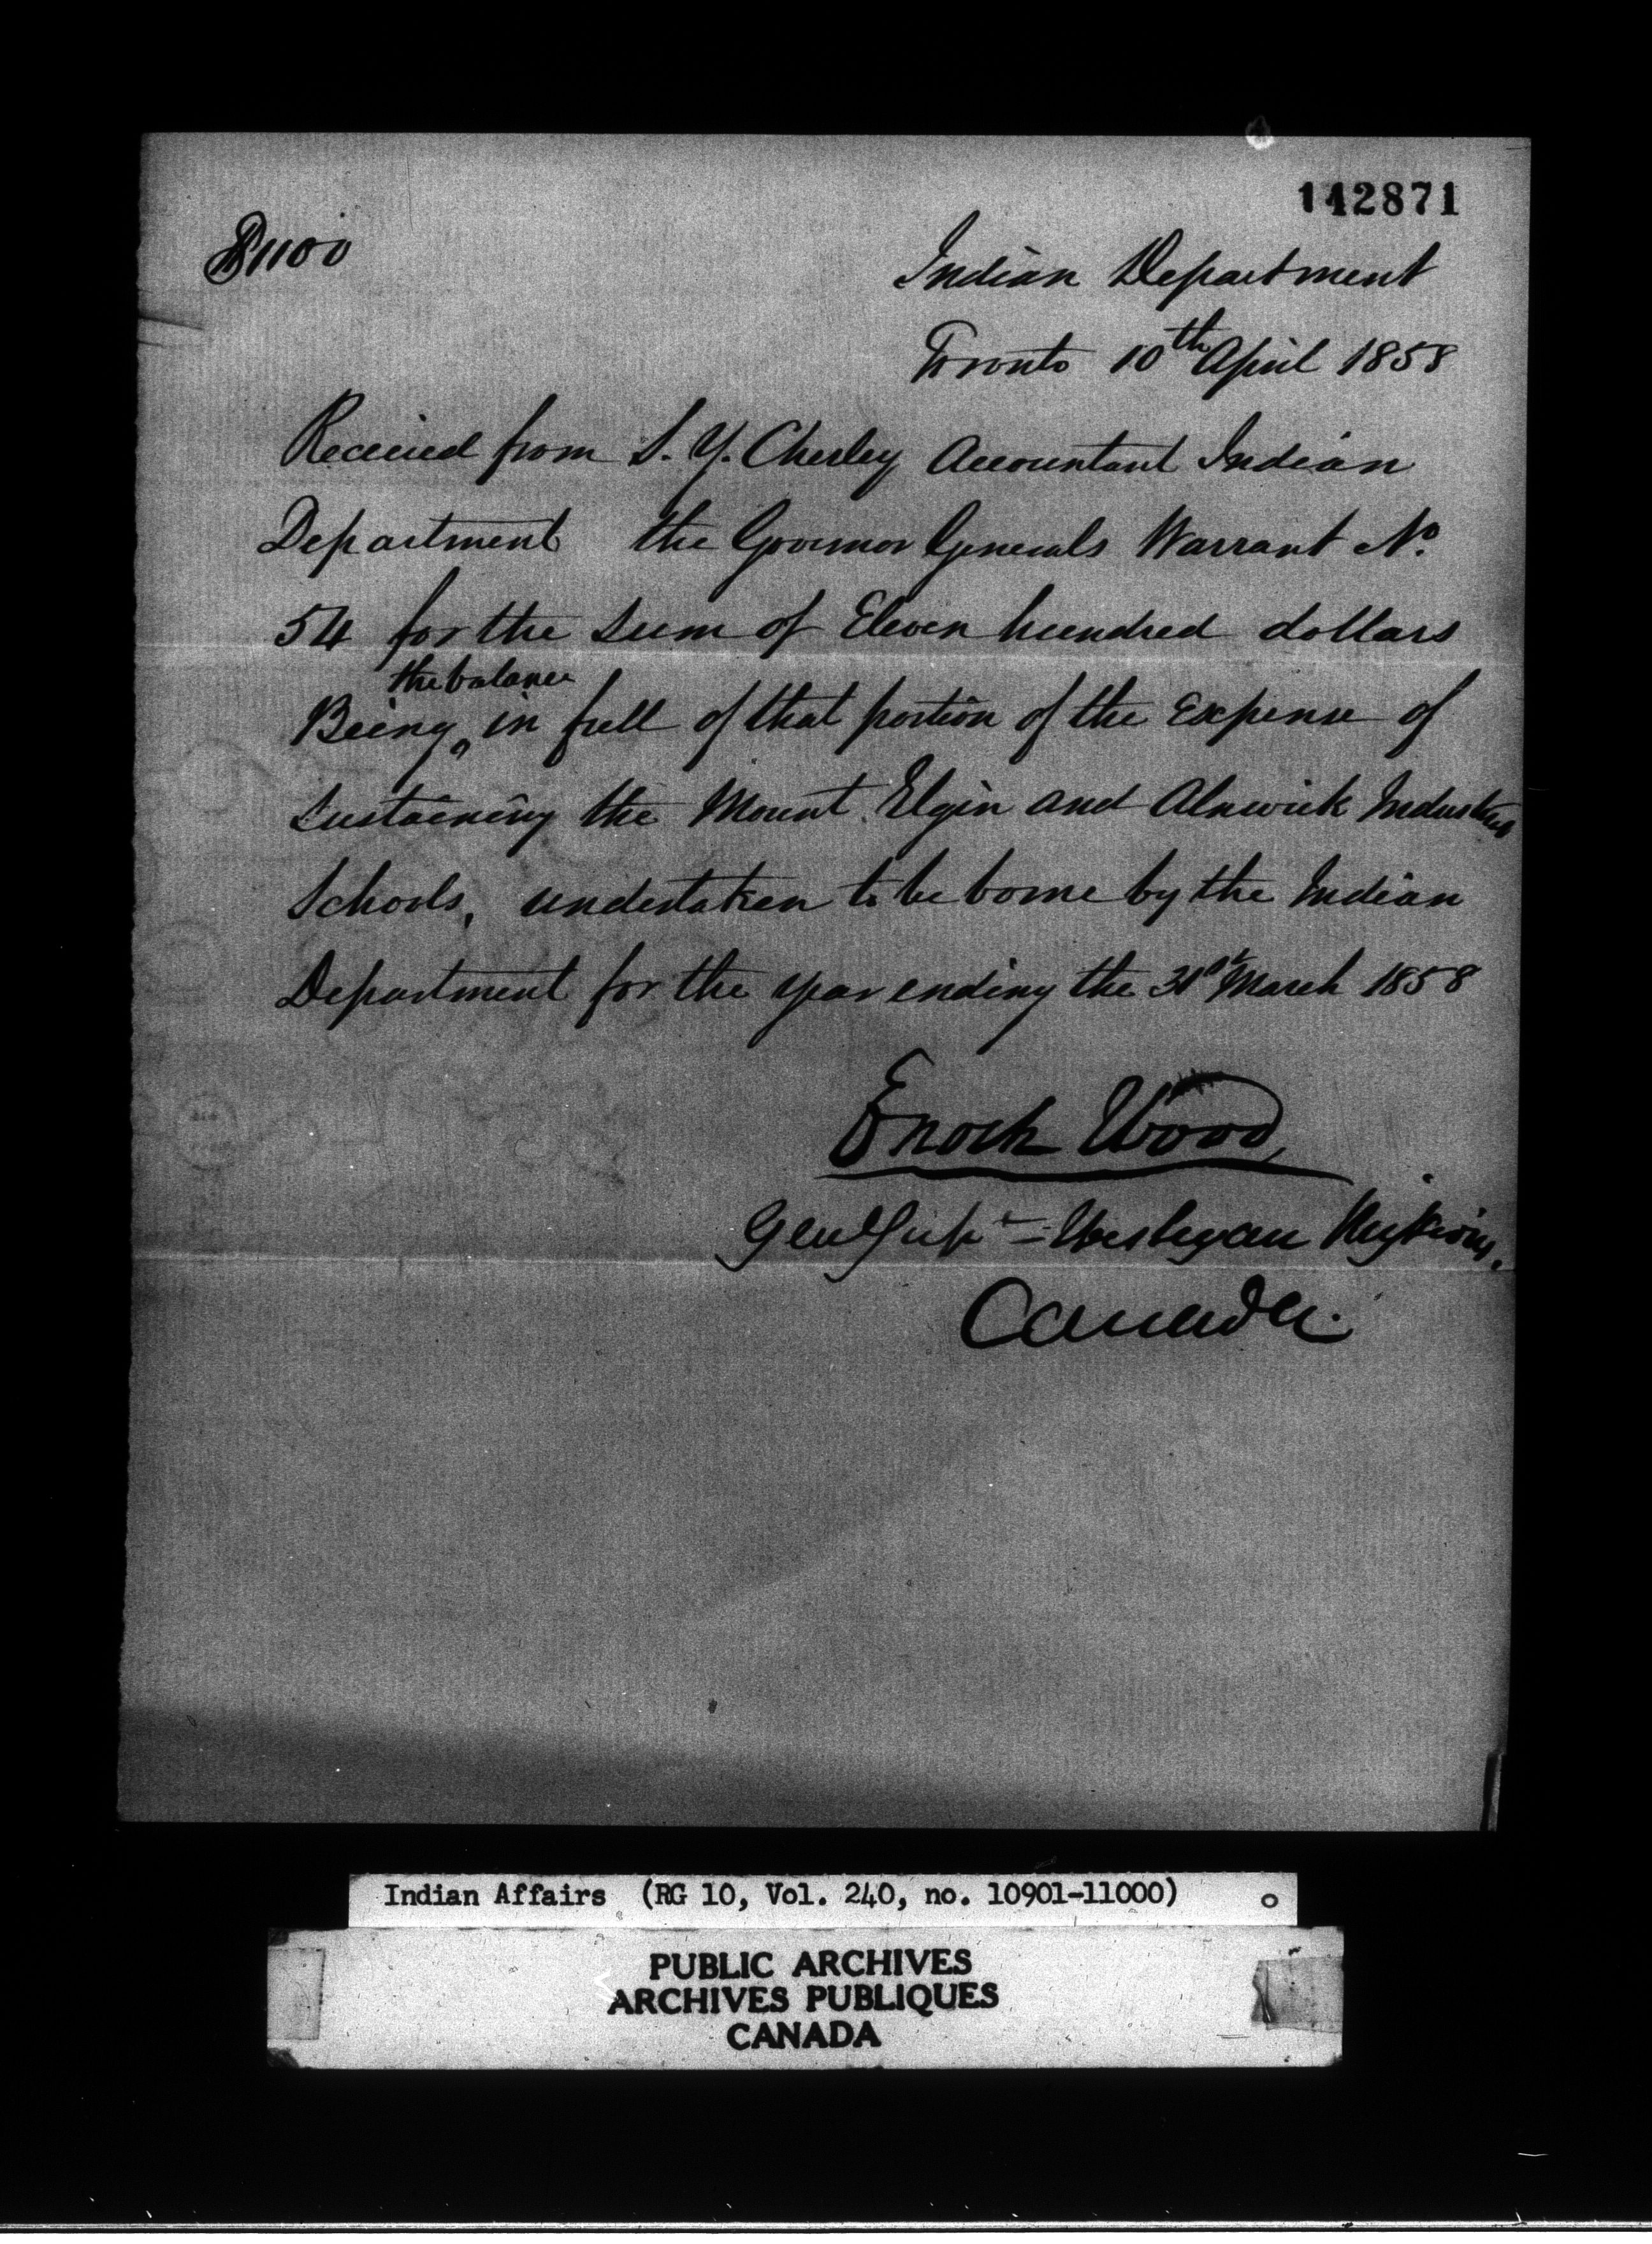 112871
$1100
Indian Department
Toronto 10th April 1858
Received from S. Y. Chesley Accountant Indian
Department the Governor Generals Warrant No.
54 for the sum of Eleven hundred dollars
the balance
Being in full of that portion of the Expense of
sustaining the Mount Elgin and Alnwick
Schools, undertaken to be borne by the Indian
Department for the year ending the 31st March 1858
Enoch Wood,
Genl Supt = Wesleyan Missions,
Canada.
Indian Affairs (RG 10, Vol. 240, no. 10901-11000)
PUBLIC ARCHIVES
ARCHIVES PUBLIQUES
CANADA